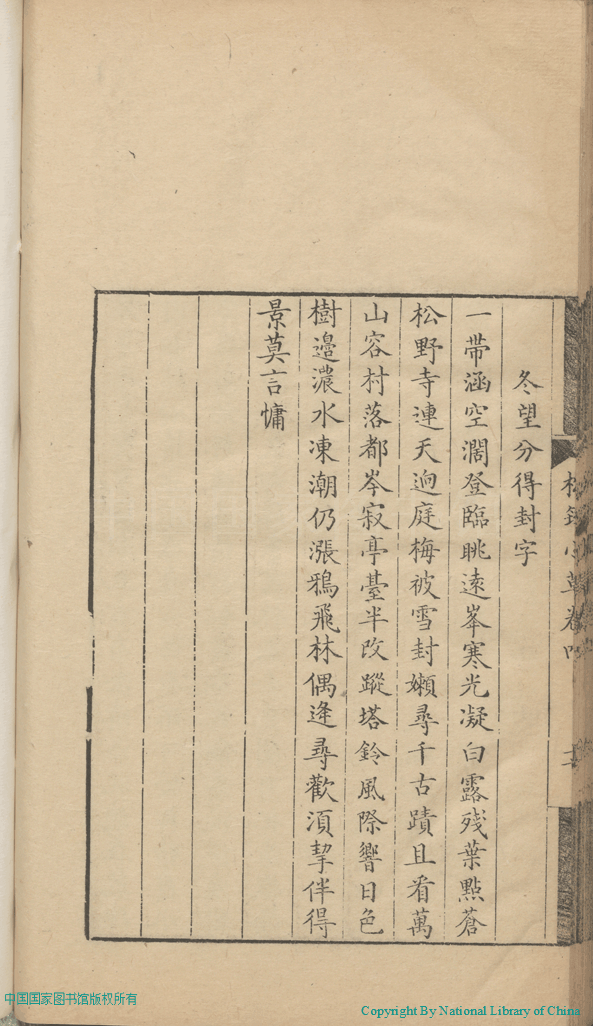 冬望分得封字
一帶涵空濶登臨眺遠峯寒光凝白露殘葉點蒼
松野寺連天逈庭梅被雪封嬾尋千古蹟且看萬
山容村落都岑寂亭臺半改蹤塔鈴風際響日色
樹邉濃水凍潮仍漲鴉飛林偶逢尋歡須挈伴得
景莫言慵
中国国家图书馆版权所有
Copyright By National Library of China